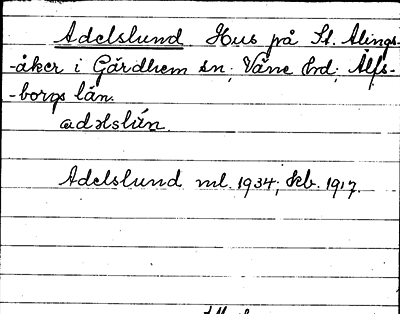 Adelslund Hus på St. Alings-
-åker i Gärdhem sn; Väne hrd; Älfs-
-borgs län.
adəlslún.
Adelslund ml. 1934; Jkb. 1917.